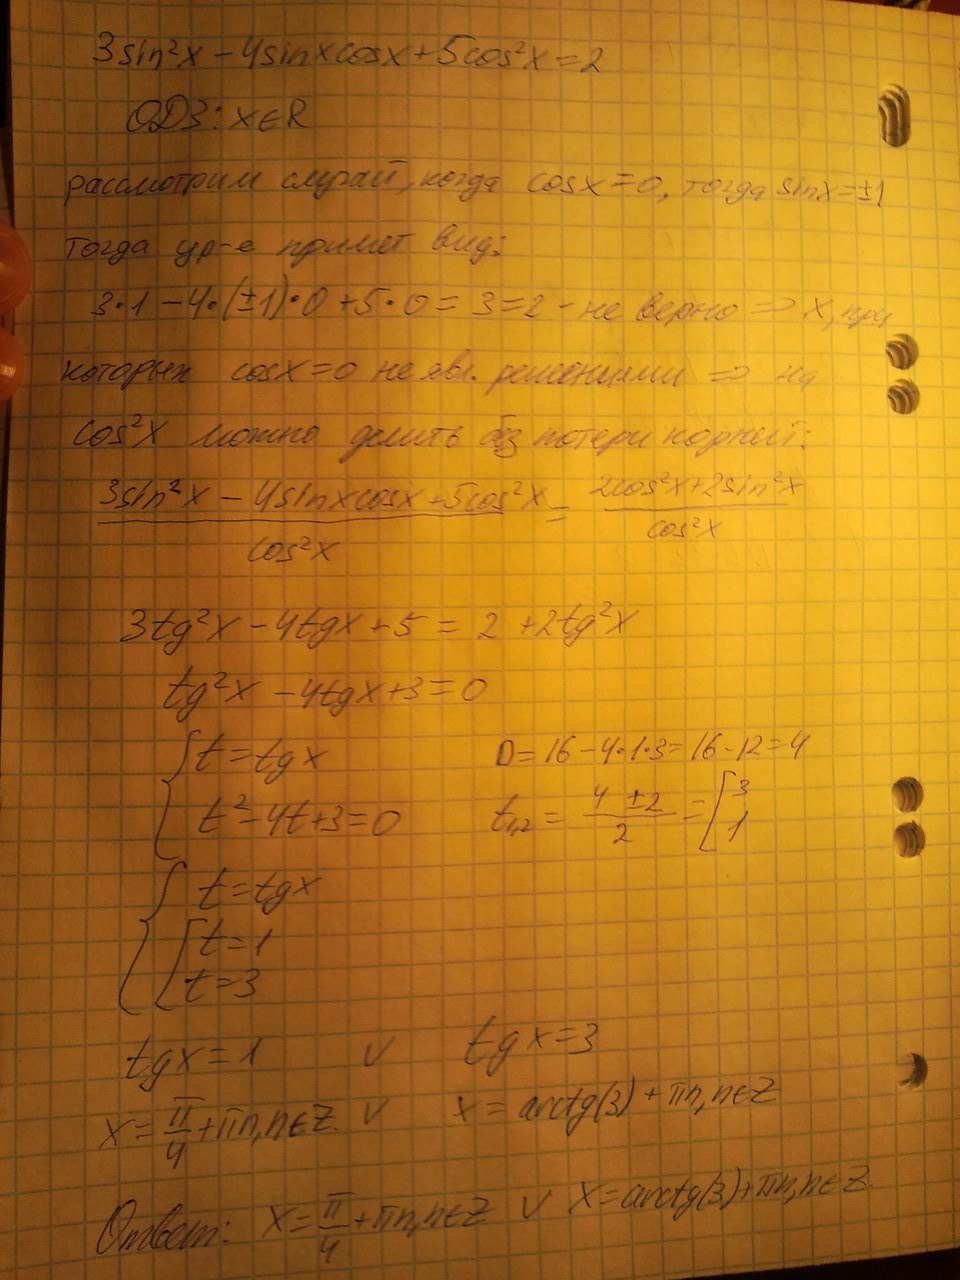 3sin²x - 4sinxcosx + 5cos²x = 2
ОДЗ: x∈R
рассмотрим случай, когда cosx=0, тогда sinx=±1
тогда ур-е примет вид:
3·1 - 4·(±1)·0 + 5·0 = 3 = 2 - не верно => x, при
которых cosx=0 не явл. решениями => на
cos²x можно делить без потери корней:
(3sin²x - 4sinxcosx + 5cos²x)/cos²x = (2cos²x + 2sin²x)/cos²x
3tg²x - 4tgx + 5 = 2 + 2tg²x
tg²x - 4tgx + 3 = 0
{ t = tgx   D = 16 - 4·1·3 = 16 - 12 = 4
t² - 4t + 3 = 0   t₁,₂ = (4 ± 2)/2 = [ 3 1
{ t = tgx
[ t = 1
t = 3
tgx = 1 ∨ tgx = 3
x = π/4 + πn, n∈Z. ∨ x = arctg(3) + πn, n∈Z
Ответ: x = π/4 + πn, n∈Z ∨ x = arctg(3) + πn, n∈Z.